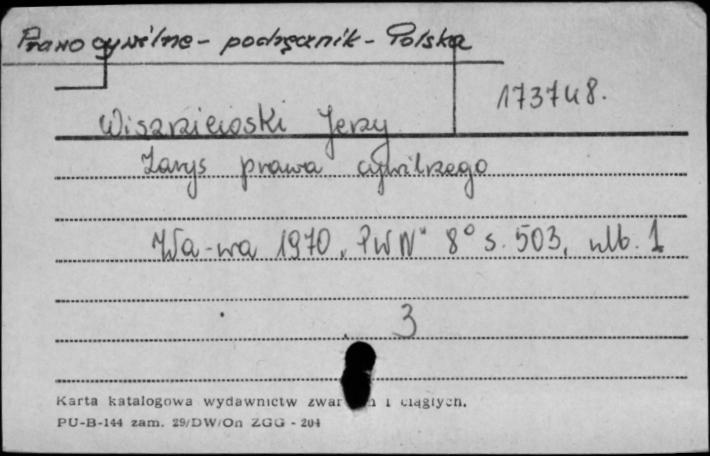 Prawo cywilne - podręcznik - Polska
173748.
Wiszniewski Jerzy
Zarys prawa cywilnego
Wa-wa 1970, "PWN" 8° s. 503, nlb. 1
3
Karta katalogowa wydawnictw i ciągłych.
PU-B-144 zam. 29/DW/On ZGG - 204